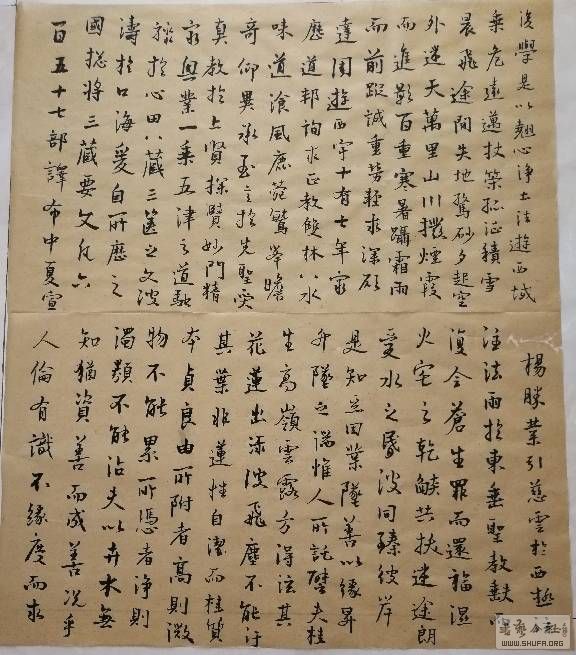 後學是以翹心淨土法遊西域
乘危遠邁杖策孤征積雪
晨飛途間失地驚砂夕起空
外迷天萬里山川撥煙霞
而進影百重寒暑躡霜雨
而前蹤誠重勞輕求深願
達周遊西宇十有七年窮
歷道邦詢求正教雙林八水
味道飡風鹿菀鷲峯瞻
奇仰異承至言於先聖受
真教於上賢探賾妙門精
窮奧業一乘五津之道馳
驟於心田八藏三篋之文波
濤於口海爰自所歷之
國摠將三藏要文凡六
百五十七部譯布中夏宣
楊勝業引慈雲於西極
注法雨於東垂聖教缺而
復全蒼生罪而還福濕
火宅之乾燄共拔迷途朗
愛水之昏波同臻彼岸
是知惡因業墜善以緣昇
升墜之端惟人所託譬夫桂
生高嶺雲露方得泫其
花蓮出淥波飛塵不能汙
其葉非蓮性自潔而桂質
本貞良由所附者高則微
物不能累所憑者淨則
濁類不能沾夫以卉木無
知猶資善而成善況乎
人倫有識不緣慶而求
WWW.SHUFA.ORG